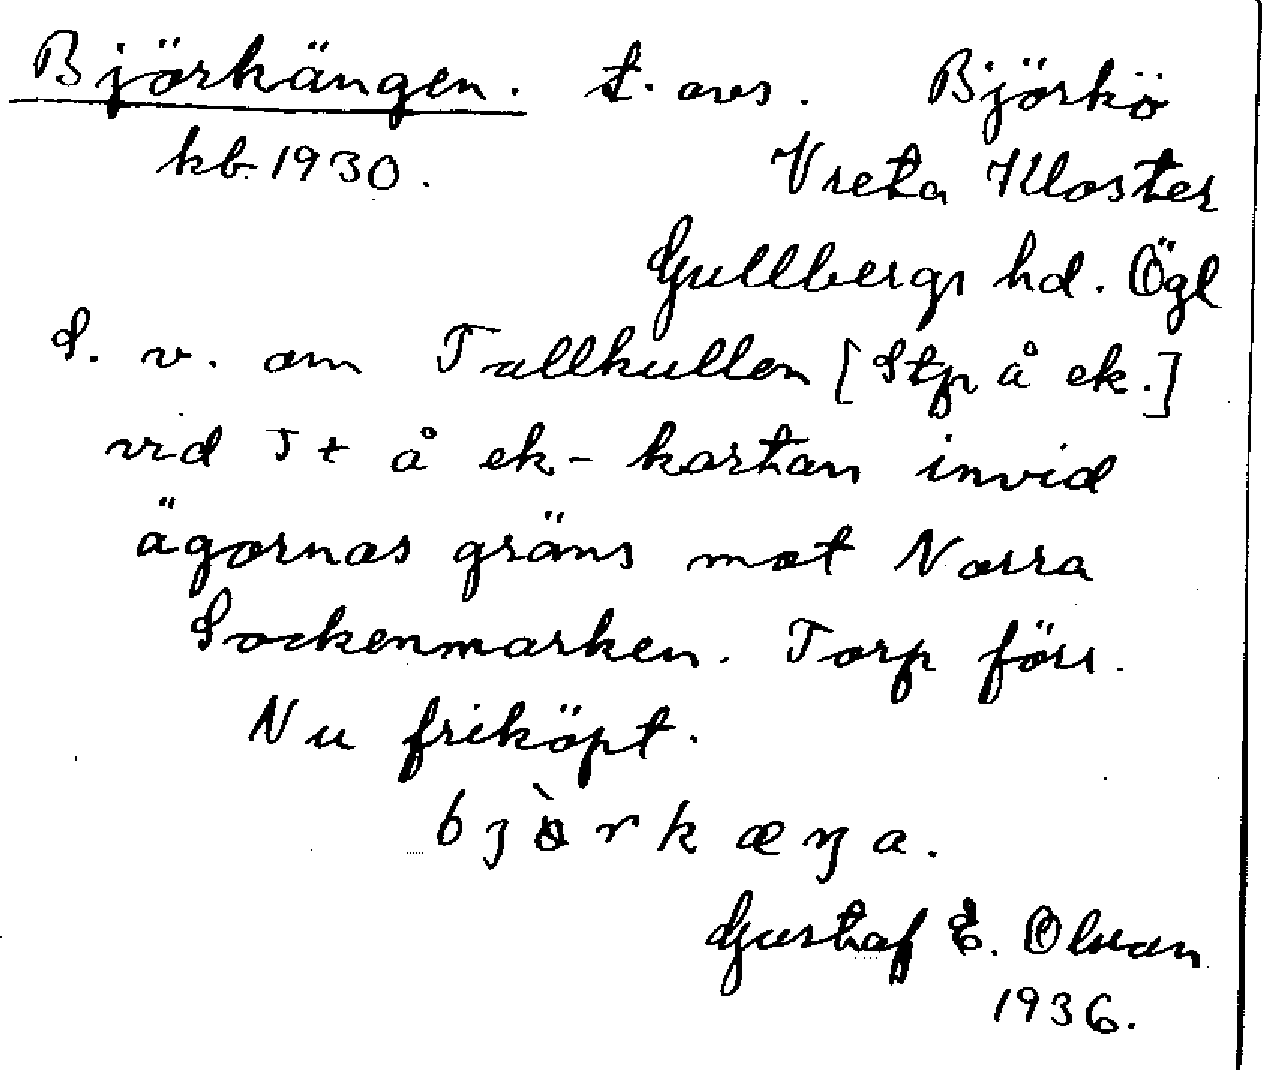 Björkängen. t. avs. Björkö
kb 1930. Vreta Kloster
Gullbergs hd. Ögl
S. v. om Tallkullen [Stp å ek.]
vid Tt å ek-kartan invid
ägornas gräns mot Norra
Sockenmarken. Torp förr.
Nu friköpt.
Gustaf E. Olsson
1936.